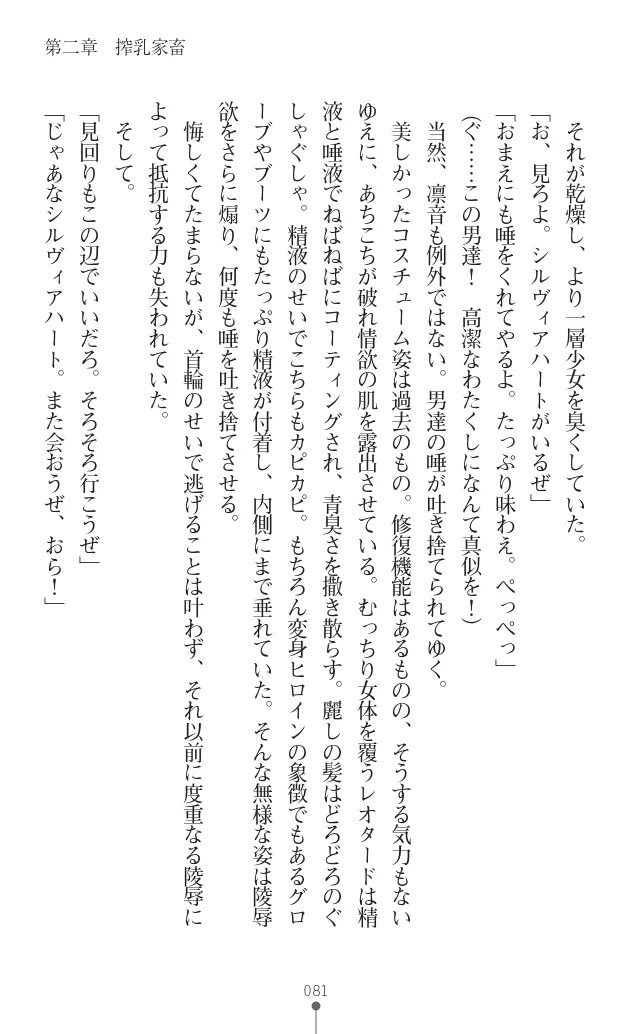 第二章　搾乳家畜
それが乾燥し、より一層少女を臭くしていた。
「お、見ろよ。シルヴィアハートがいるぜ」
「おまえにも唾をくれてやるよ。たっぷり味わえ。ぺっぺっ」
（ぐ……この男達！　高潔なわたくしになんて真似を！）
当然、凛音も例外ではない。男達の唾が吐き捨てられてゆく。
美しかったコスチューム姿は過去のもの。修復機能はあるものの、そうする気力もない
ゆえに、あちこちが破れ情欲の肌を露出させている。むっちり女体を覆うレオタードは精
液と唾液でねばねばにコーティングされ、青臭さを撒き散らす。麗しの髪はどろどろのぐ
しゃぐしゃ。精液のせいでこちらもカピカピ。もちろん変身ヒロインの象徴でもあるグロ
ーブやブーツにもたっぷり精液が付着し、内側にまで垂れていた。そんな無様な姿は陵辱
欲をさらに煽り、何度も唾を吐き捨てさせる。
悔しくてたまらないが、首輪のせいで逃げることは叶わず、それ以前に度重なる陵辱に
よって抵抗する力も失われていた。
そして。
「見回りもこの辺でいいだろ。そろそろ行こうぜ」
「じゃあなシルヴィアハート。また会おうぜ、おら！」
081